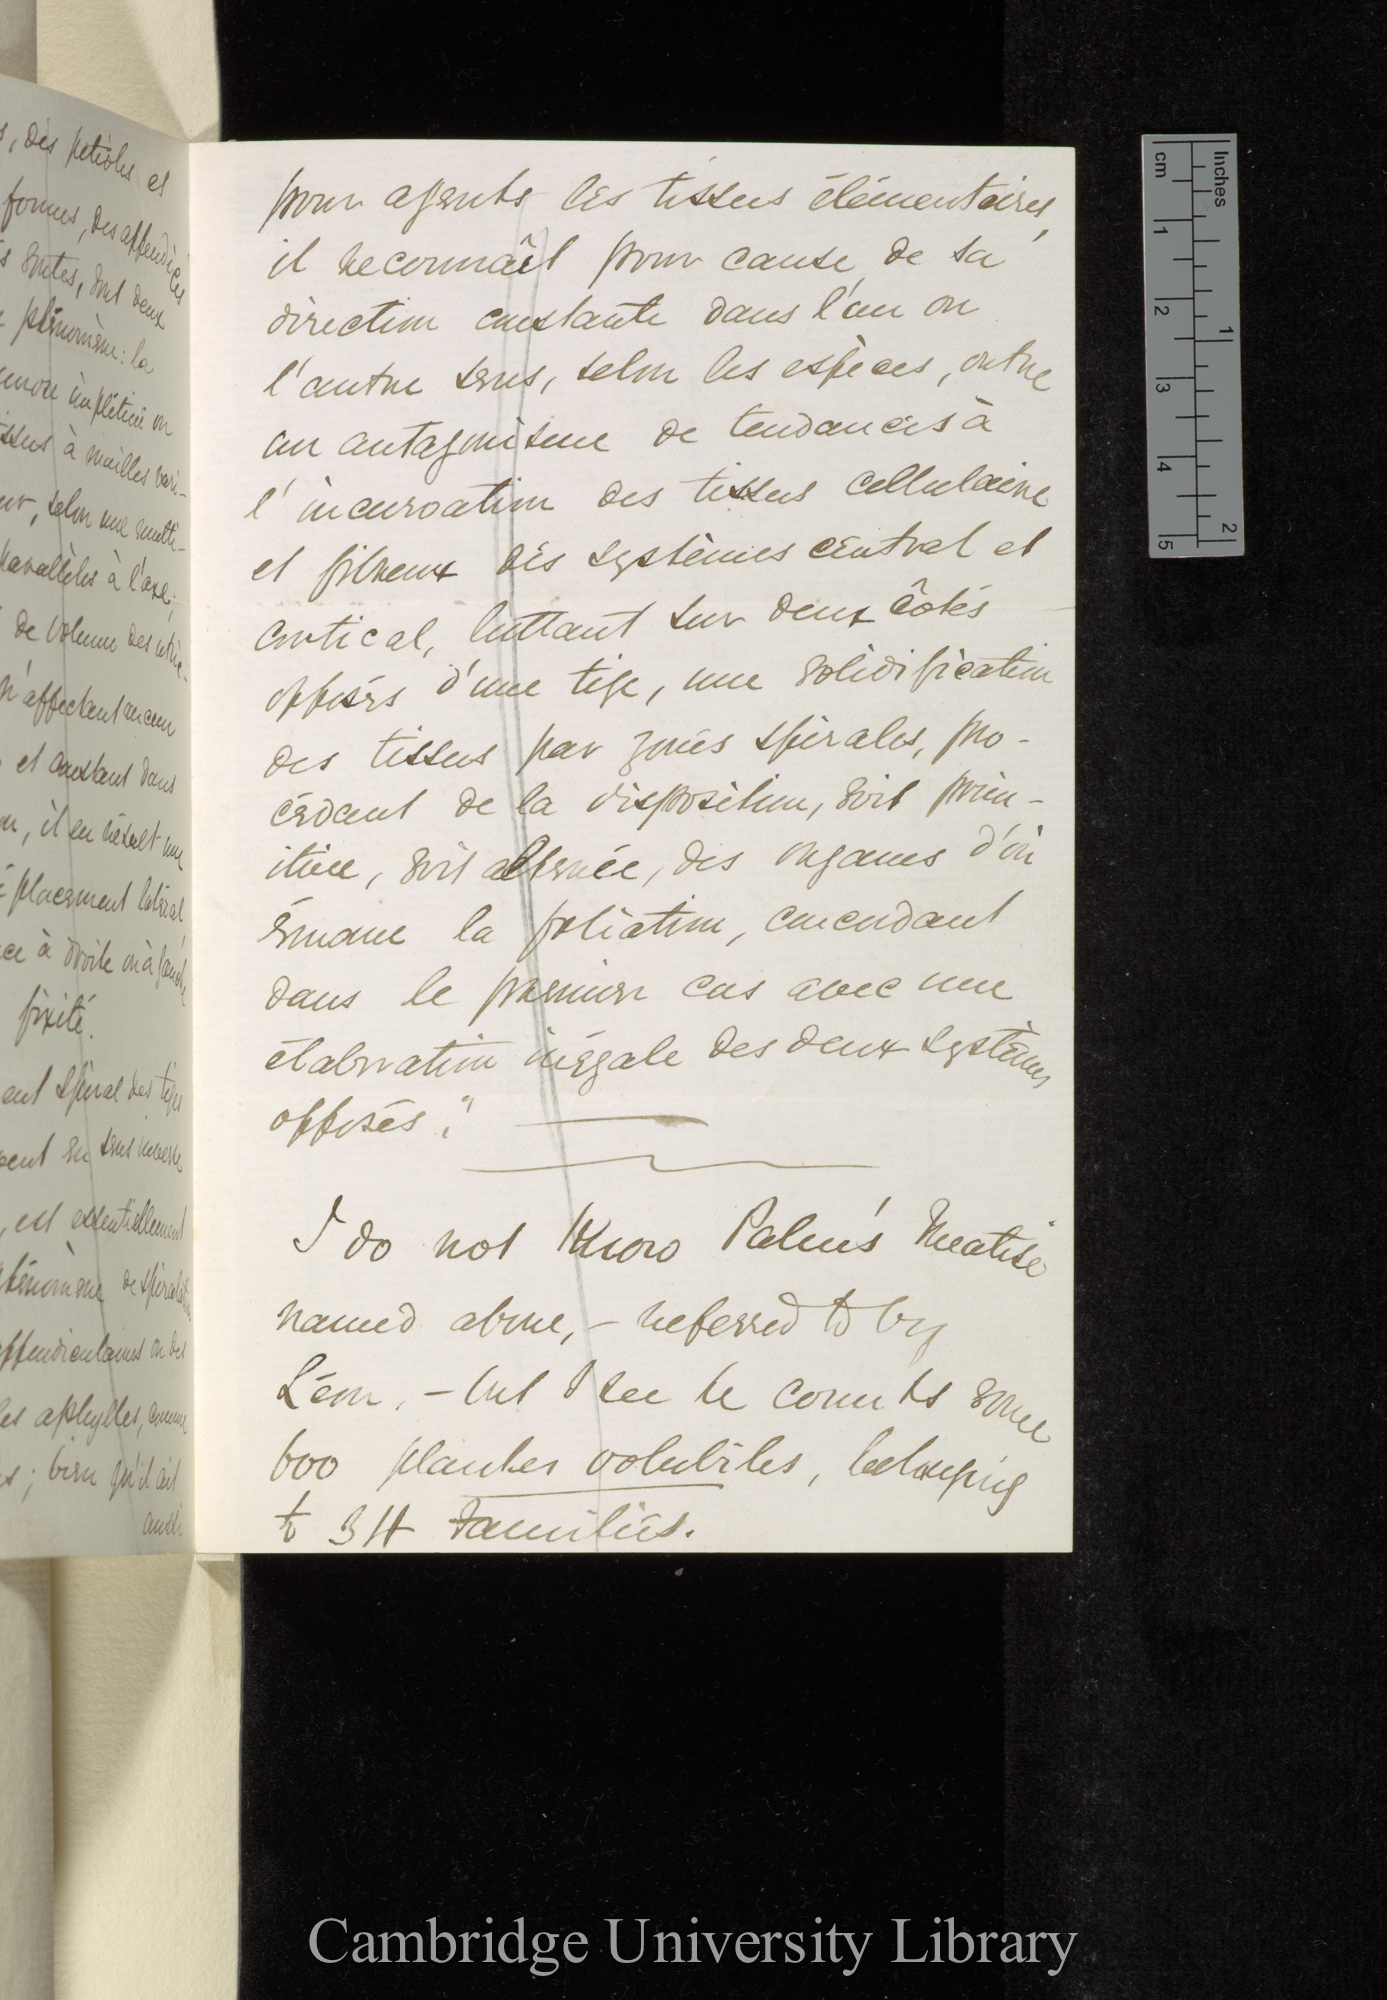 s, des petioles et
formes, des appendices
s sortes, dont deux
phénomène: la
encore impliticé ou
issus à mailles vari-
ur, selon une multi-
parallèles à l'axe;
de volume des utric-
n'affectant aucun
et constant dans
on, il en résult une
éplacement latéral
ce à droite ou à gauche
fixité.
ent spiral des tiges
ent en sens inverse
, est essentiellement
phénomène de spiralation
appendiculaires ou des
les aphylles, comme
s; bien qu'il ait
aussi
pour agents les tissus élémentaires,
il reconnaît pour cause de sa
direction constante dans l'un ou
l'autre sens, selon les espèces, outre
un antagonisme de tendances à
l'incurvation des tissus cellulaire
et fibreux des systèmes central et
cortical, luttant sur deux côtés
opposés d'une tige, une solidification
des tissus par zones spirales, pro-
cédant de la disposition, soit prim-
itive, soit alternée, des organes d'où
émane la foliation, concordant
dans le premier cas avec une
élaboration inégale des deux systèmes
opposés."
I do not know Palm's treatise
named above, – referred to by
Léon, – but I see he counts some
600 plantes volubiles, belonging
to 34 families.
cm
1
2
3
4
5
Inches
1
2
Cambridge University Library